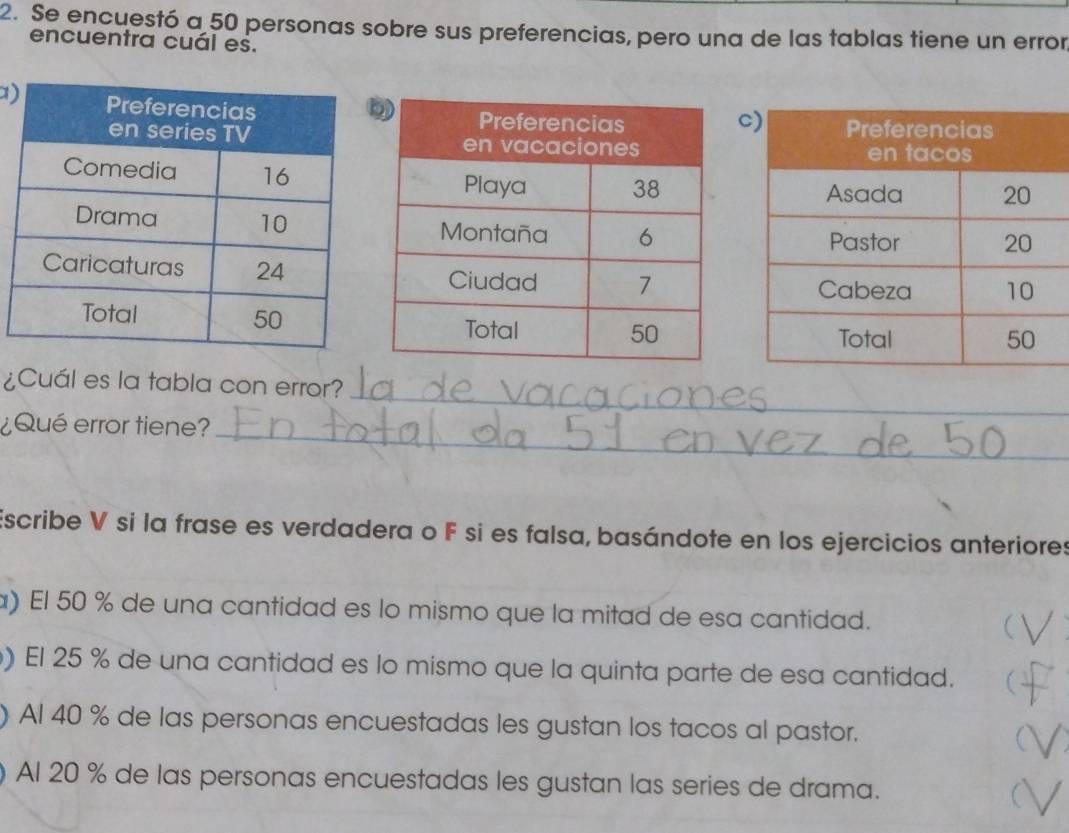 2. Se encuestó a 50 personas sobre sus preferencias, pero una de las tablas tiene un error,
encuentra cuál es.
a)
Preferencias
en series TV
Comedia 16
Drama 10
Caricaturas 24
Total 50
b)
Preferencias
en vacaciones
Playa 38
Montaña 6
Ciudad 7
Total 50
c)
Preferencias
en tacos
Asada 20
Pastor 20
Cabeza 10
Total 50
¿Cuál es la tabla con error? la de vacaciones
¿Qué error tiene? En total da 51 en vez de 50
Escribe V si la frase es verdadera o F si es falsa, basándote en los ejercicios anteriores
a) El 50 % de una cantidad es lo mismo que la mitad de esa cantidad. (V)
) El 25 % de una cantidad es lo mismo que la quinta parte de esa cantidad. (F
) Al 40 % de las personas encuestadas les gustan los tacos al pastor. (V)
) Al 20 % de las personas encuestadas les gustan las series de drama. (V